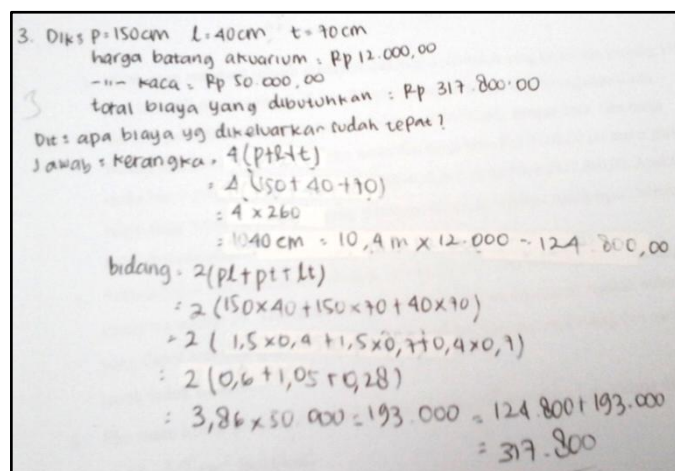 3. Dik : p = 150cm l = 40cm t = 70cm
harga batang akuarium = Rp 12.000,00
-"- kaca = Rp 50.000,00
3
total biaya yang dibutuhkan = Rp 317.800.00
Dit : apa biaya yg dikeluarkan sudah tepat?
Jawab = kerangka = 4(p+l+t)
= 4 (150 + 40 + 70)
= 4 x 260
= 1040 cm = 10,4 m x 12.000 = 124.800,00
bidang = 2(pl+pt+lt)
= 2 (150x40+150x70+40x70)
= 2 ( 1,5 x0,4 +1,5x0,7+0,4x0,7)
= 2(0,6+1,05+0,28)
= 3,86 x 50.000 = 193.000 = 124.800+193.000
= 317.800